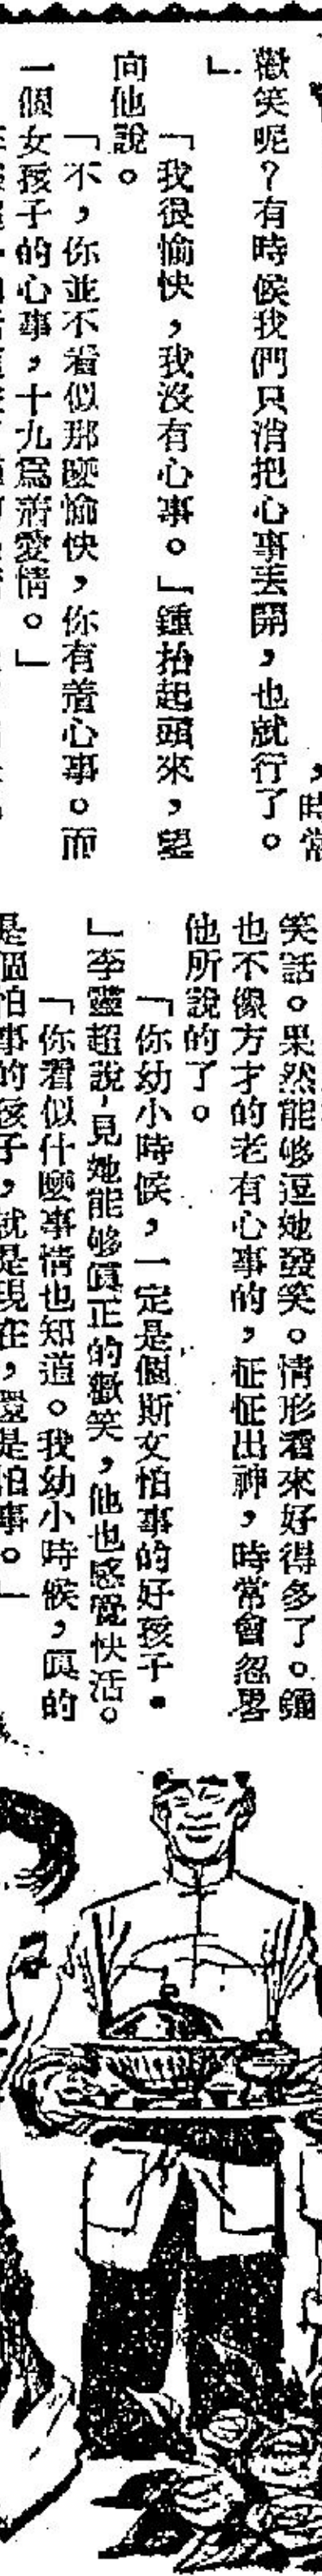 ，時常
歡笑呢？有時候我們只消把心事丟開，也就行了。
」
「我很愉快，我沒有心事。」鍾抬起頭來，望
向他說。
「不，你並不看似那麼愉快，你有着心事。而
一個女孩子的心事，十九爲着愛情。」
笑話。果然能够逗她發笑。情形看來好得多了。鍾
也不像方才的老有心事的，怔怔出神，時常會忽畧
他所說的了。
「你幼小時候，一定是個斯文怕事的好孩子。
」李靈超說，見她能够眞正的歡笑，他也感覺快活。
「你看似什麼事情也知道。我幼小時候，眞的
是個怕事的孩子，就是現在，還是怕事。」